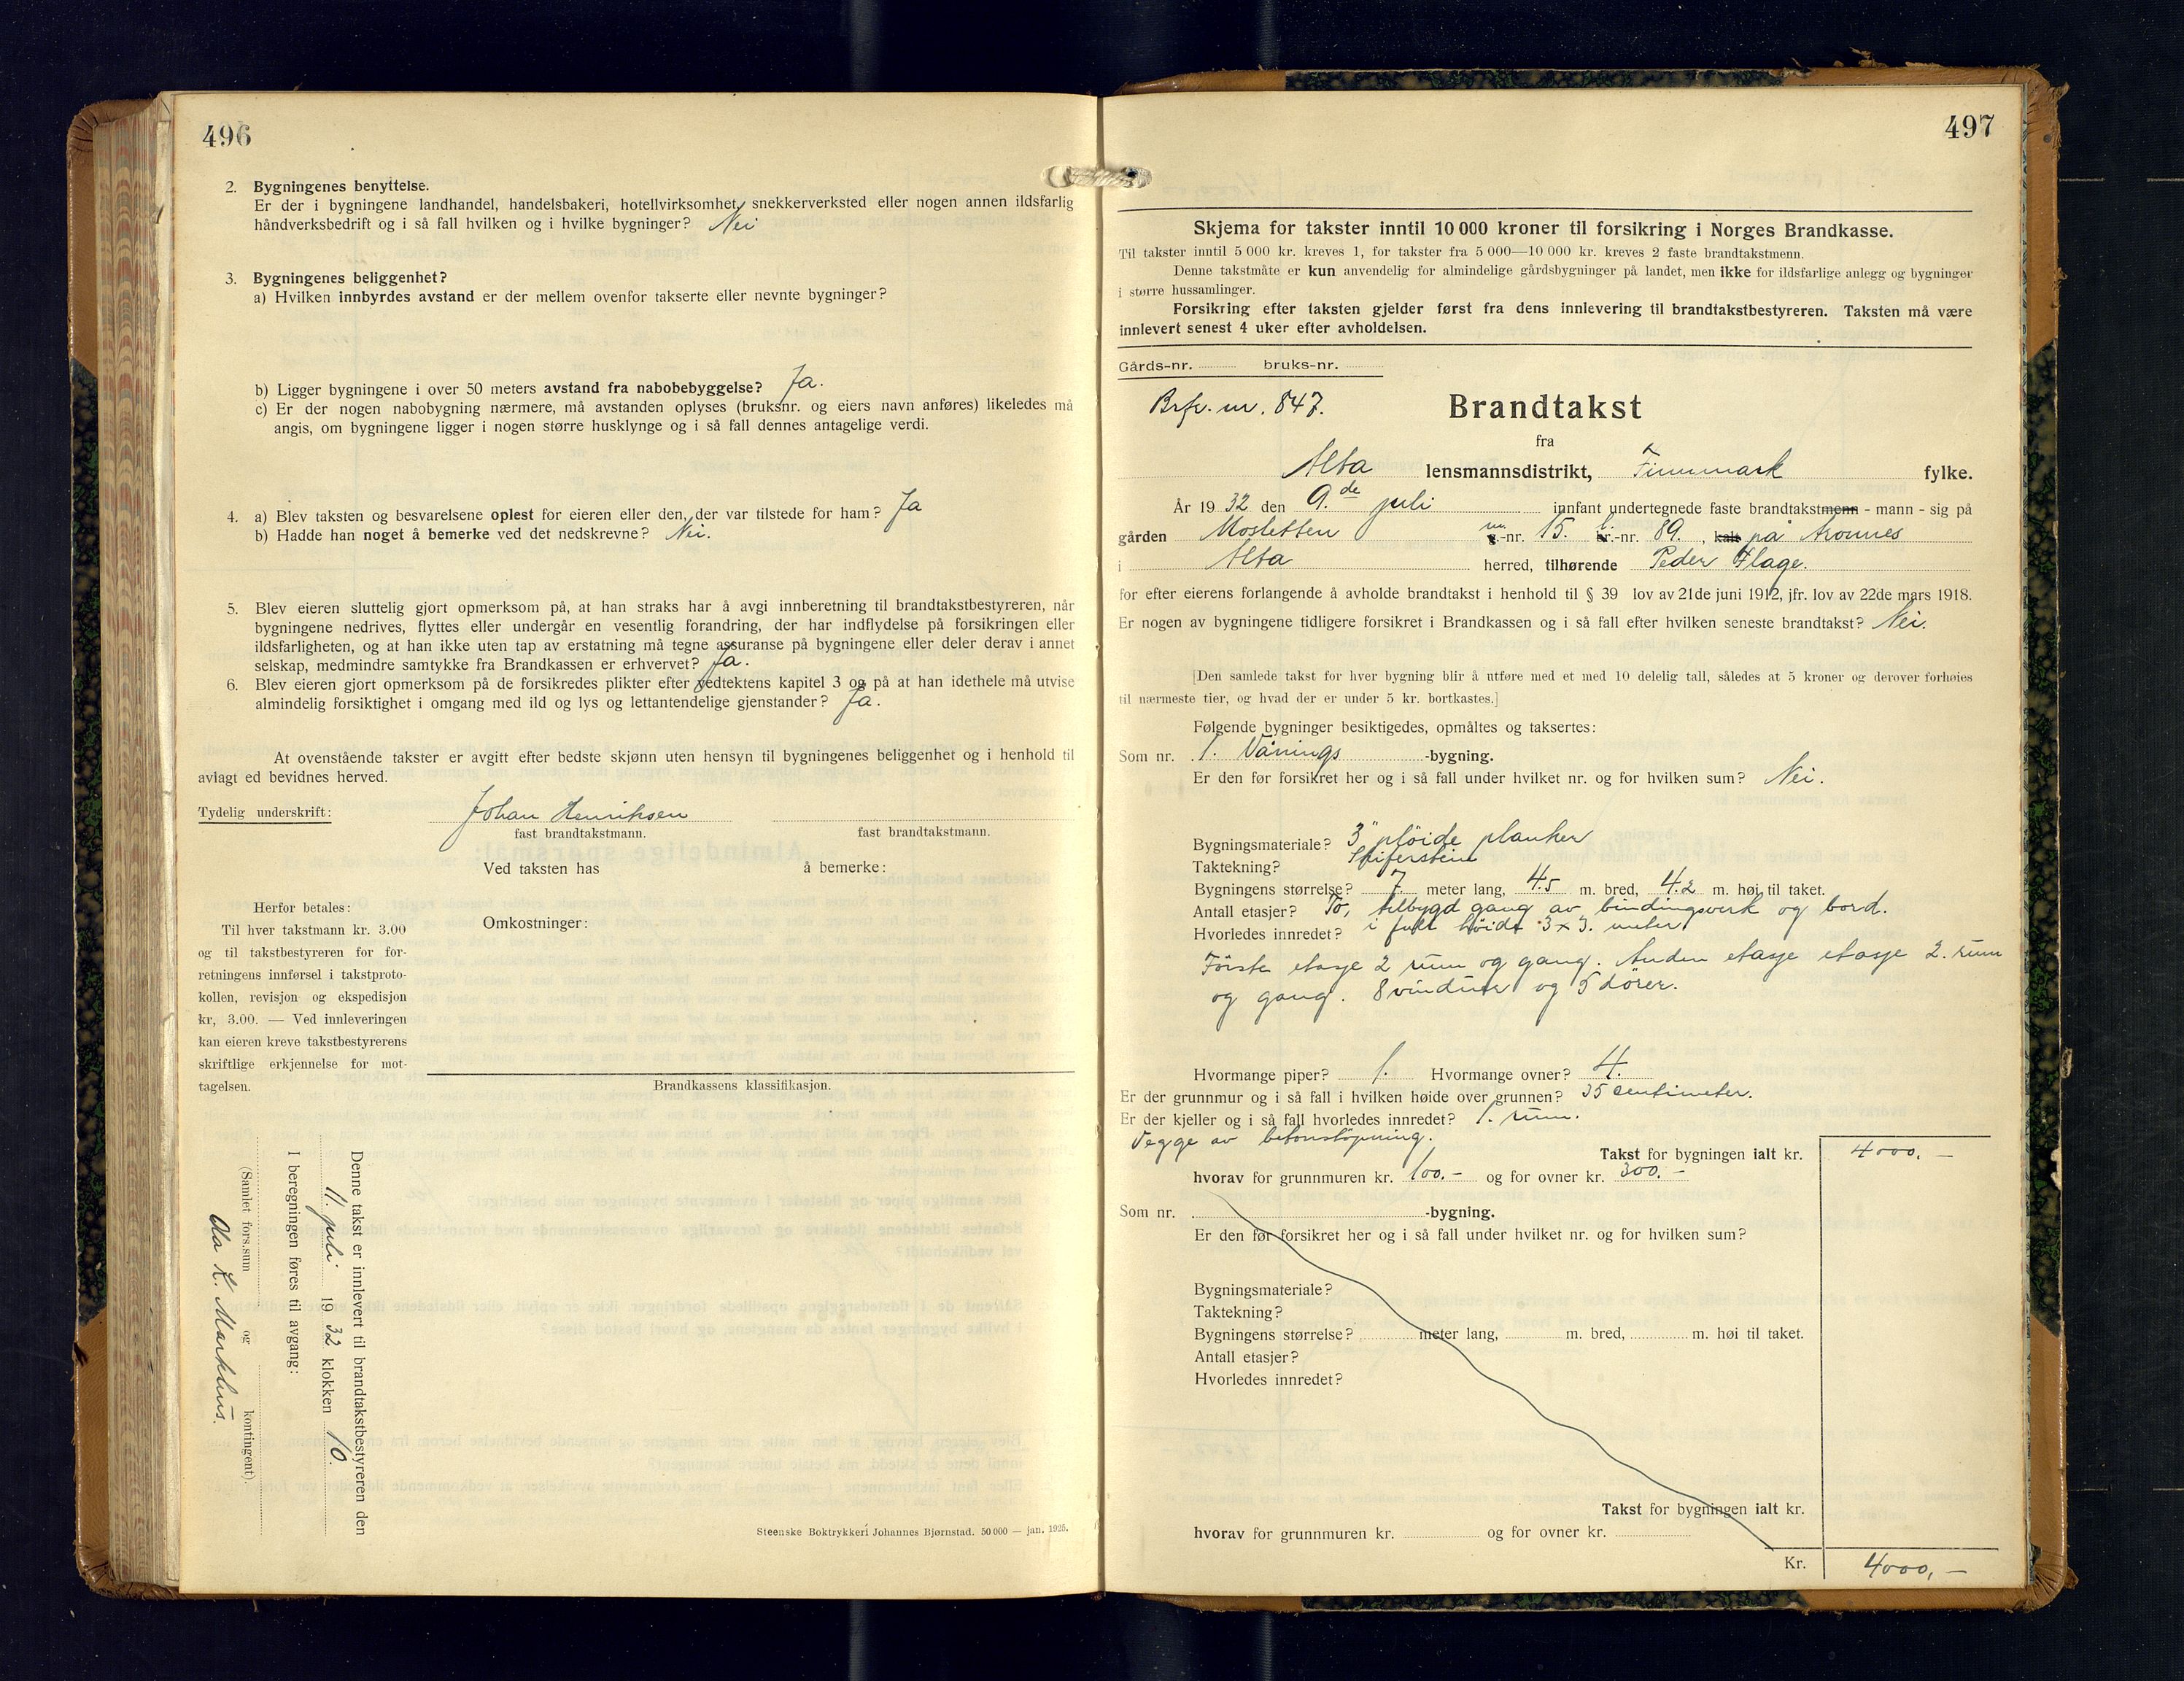 496
2. Bygningenes benyttelse.
Er der i bygningene landhandel, handelsbakeri, hotellvirksomhet, snekkerverksted eller nogen annen ildsfarlig
håndverksbedrift og i så fall hvilken og i hvilke bygninger? Nei
3. Bygningenes beliggenhet?
a) Hvilken innbyrdes avstand er der mellem ovenfor takserte eller nevnte bygninger?
b) Ligger bygningene i over 50 meters avstand fra nabobebyggelse? Ja.
c) Er der nogen nabobygning nærmere, må avstanden oplyses (bruksnr. og eiers navn anføres) likeledes må
angis, om bygningene ligger i nogen større husklynge og i så fall dennes antagelige verdi.
4. a) Blev taksten og besvarelsene oplest for eieren eller den, der var tilstede for ham? Ja
b) Hadde han noget å bemerke ved det nedskrevne? Nei.
5. Blev eieren sluttelig gjort opmerksom på, at han straks har å avgi innberetning til brandtakstbestyreren, når
bygningene nedrives, flyttes eller undergår en vesentlig forandring, der har indflydelse på forsikringen eller
ildsfarligheten, og at han ikke uten tap av erstatning må tegne assuranse på bygningene eller deler derav i annet
selskap, medmindre samtykke fra Brandkassen er erhvervet? Ja.
6. Blev eieren gjort opmerksom på de forsikredes plikter efter vedtektens kapitel 3 og på at han idethele må utvise
almindelig forsiktighet i omgang med ild og lys og lettantendelige gjenstander? Ja.
At ovenstående takster er avgitt efter bedste skjønn uten hensyn til bygningenes beliggenhet og i henhold til
avlagt ed bevidnes herved.
Tydelig underskrift: Johan Henriksen
fast brandtakstmann. fast brandtakstmann.
Ved taksten has å bemerke:
Omkostninger:
Herfor betales:
Til hver takstmann kr. 3.00
og til takstbestyreren for for-
retningens innførsel i takstproto-
kollen, revisjon og ekspedisjon
kr, 3.00. — Ved innleveringen
kan eieren kreve takstbestyrerens
skriftlige erkjennelse for mot-
tagelsen.
Brandkassens klassifikasjon.
Denne takst er innlevert til brandtakstbestyreren den
11. juli 19 32 klokken 10.
I beregningen føres til avgang:
(Samlet fors.sum og kontingent).
Ola K. Markhus.
Steenske Boktrykkeri Johannes Bjørnstad. 50 000 — jan. 1925.
497
Skjema for takster inntil 10 000 kroner til forsikring i Norges Brandkasse.
Til takster inntil 5 000 kr. kreves 1, for takster fra 5 000—10 000 kr. kreves 2 faste brandtakstmenn.
Denne takstmåte er kun anvendelig for almindelige gårdsbygninger på landet, men ikke for ildsfarlige anlegg og bygninger
i større hussamlinger.
Forsikring efter taksten gjelder først fra dens innlevering til brandtakstbestyreren. Taksten må være
innlevert senest 4 uker efter avholdelsen.
Gårds-nr. bruks-nr.
Brfr. nr. 847. Brandtakst
fra
Alta lensmannsdistrikt, Finnmark fylke.
År 19 32 den 9. de juli innfant undertegnede faste brandtakstmenn - mann - sig på
gården Mosletten nr. g.-nr. 15. b. br.-nr. 89. , kalt på Aronnes
i Alta herred, tilhørende Peder Flage.
for efter eierens forlangende å avholde brandtakst i henhold til § 39 lov av 21de juni 1912, jfr. lov av 22de mars 1918.
Er nogen av bygningene tidligere forsikret i Brandkassen og i så fall efter hvilken seneste brandtakst? Nei.
[Den samlede takst for hver bygning blir å utføre med et med 10 delelig tall, således at 5 kroner og derover forhøies
til nærmeste tier, og hvad der er under 5 kr. bortkastes.]
Følgende bygninger besiktigedes, opmåltes og taksertes:
Som nr. 1. Vånings -bygning.
Er den før forsikret her og i så fall under hvilket nr. og for hvilken sum? Nei.
Bygningsmateriale? 3" pløide planker
Taktekning? Skiferstein
Bygningens størrelse? 7. meter lang, 4.5 m. bred, 4.2 m. høi til taket.
Antall etasjer? To, tilbygd gang av bindingsverk og bord.
Hvorledes innredet? i full høide 3 x 3. meter
Første etasje 2 rum og gang. Anden etasje etasje 2. rum
og gang. 8 vinduer og 5 dører.
Hvormange piper? 1. Hvormange ovner? 4.
Er der grunnmur og i så fall i hvilken høide over grunnen? 35 centimeter.
Er der kjeller og i så fall hvorledes innredet? 1. rum.
Vegge av betonstøpning.
Takst for bygningen ialt kr. 4000. —
hvorav for grunnmuren kr. 100.- og for ovner kr. 300. -
Som nr. -bygning.
Er den før forsikret her og i så fall under hvilket nr. og for hvilken sum?
Bygningsmateriale?
Taktekning?
Bygningens størrelse? meter lang, m. bred, m. høi til taket.
Antall etasjer?
Hvorledes innredet?
Takst for bygningen ialt kr.
hvorav for grunnmuren kr. og for ovner kr.
Kr. 4000, —